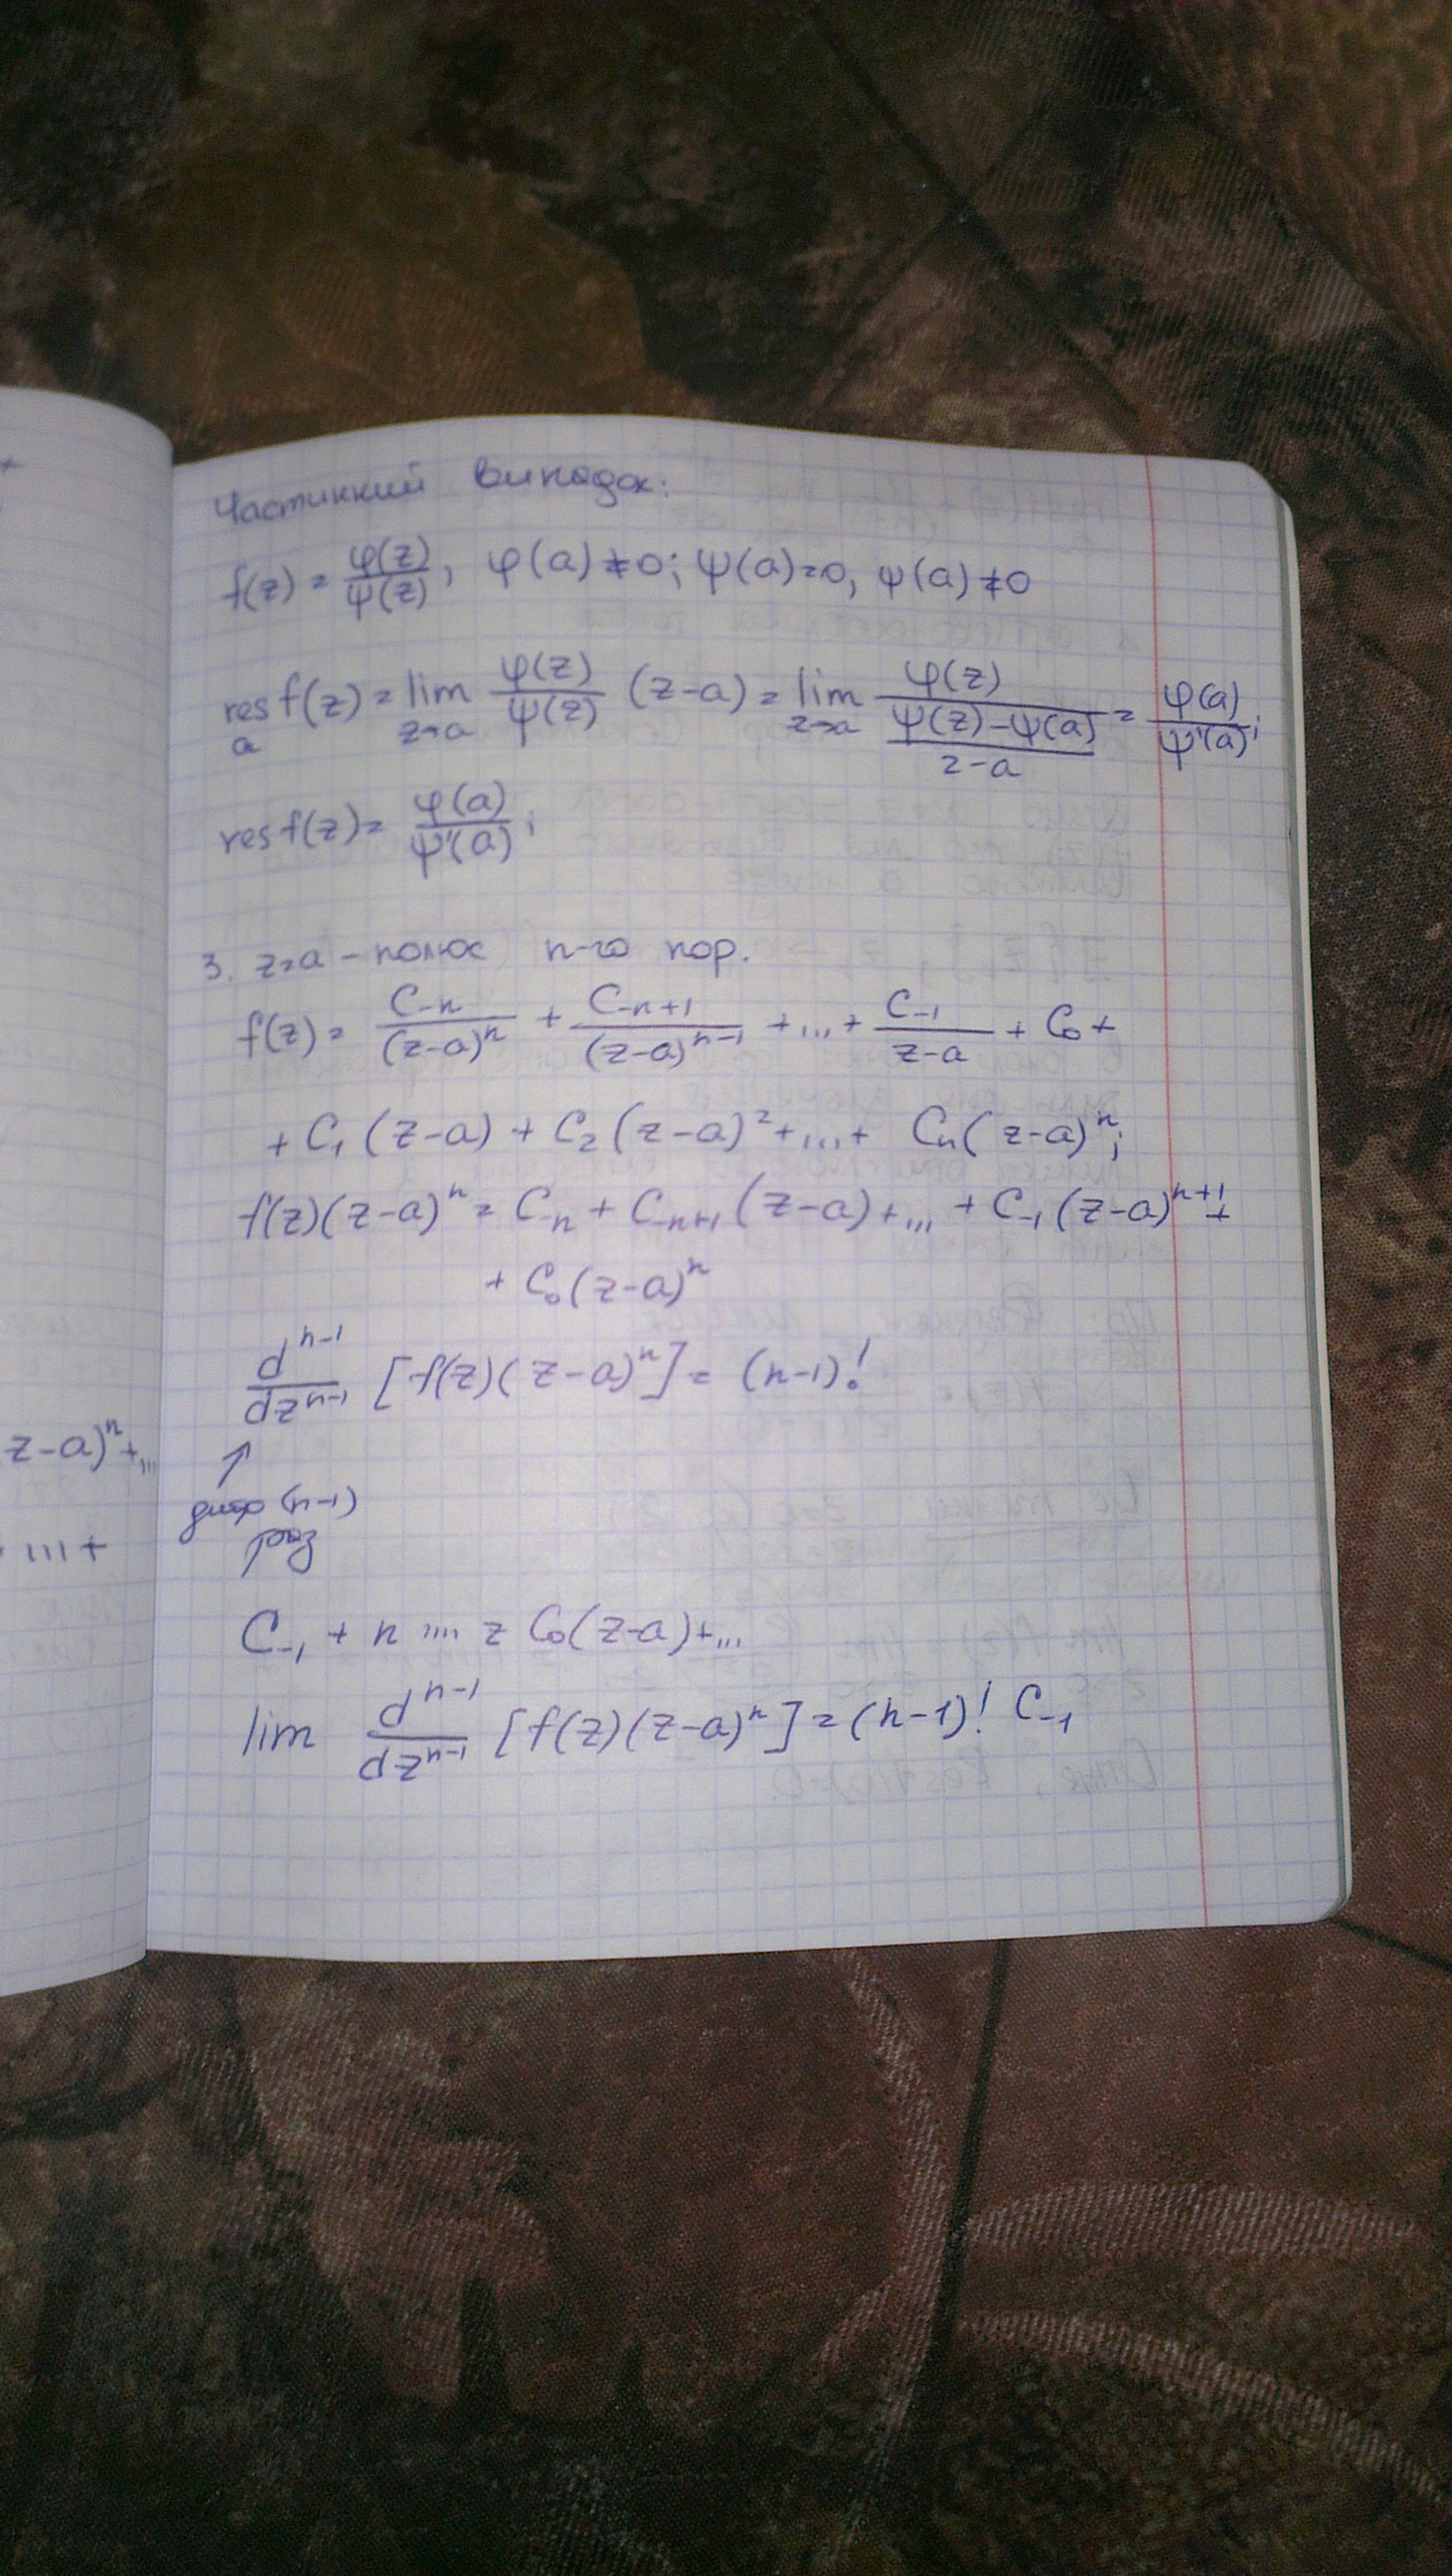 +
z-a)ⁿ+...
...+
Частинний випадок:
f(z) = φ(z)/ψ(z), φ(a)≠0; ψ(a)=0, ψ(a)≠0
res_a f(z) = lim_{z→a} φ(z)/ψ(z) (z-a) = lim_{z→a} φ(z)/((ψ(z)-ψ(a))/(z-a)) = φ(a)/ψ'(a);
res f(z) = φ(a)/ψ'(a);
3. z=a - полюс n-го пор.
f(z) = C₋ₙ/(z-a)ⁿ + C₋ₙ₊₁/(z-a)ⁿ⁻¹ +...+ C₋₁/(z-a) + C₀ +
+ C₁(z-a) + C₂(z-a)² +...+ Cₙ(z-a)ⁿ;
f(z)(z-a)ⁿ = C₋ₙ + C₋ₙ₊₁(z-a)+... + C₋₁(z-a)ⁿ⁺¹ +
+ C₀(z-a)ⁿ
dⁿ⁻¹/dzⁿ⁻¹ [f(z)(z-a)ⁿ] = (n-1)!
↑
дифр (n-1)
раз
C₋₁ + n .... z C₀(z-a)+...
lim dⁿ⁻¹/dzⁿ⁻¹ [f(z)(z-a)ⁿ] = (n-1)! C₋₁